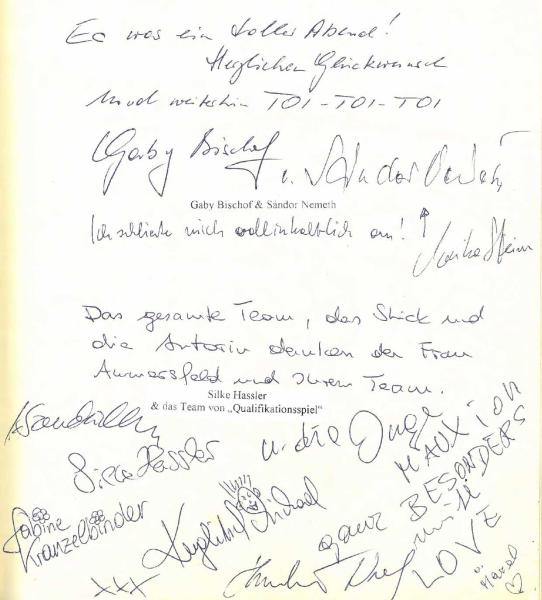 Es war ein toller Abend!
Herzlichen Glückwunsch
und weiterhin TOI-TOI-TOI
Gaby Bischof
u. Sándor Nemeth
Gaby Bischof & Sándor Nemeth
Ich schließe mich vollinhaltlich an! ↑
Das gesamte Team, das Stück und
die Autorin danken der Frau
Ammersfeld und Ihrem Team.
Silke Hassler
& das Team von „Qualifikationsspiel“
u. die Inge
Silke Hassler
MAUX ION
ganz BESONDERS
Sabine
Kranzelbinder
Michael
mit
LOVE
XXX